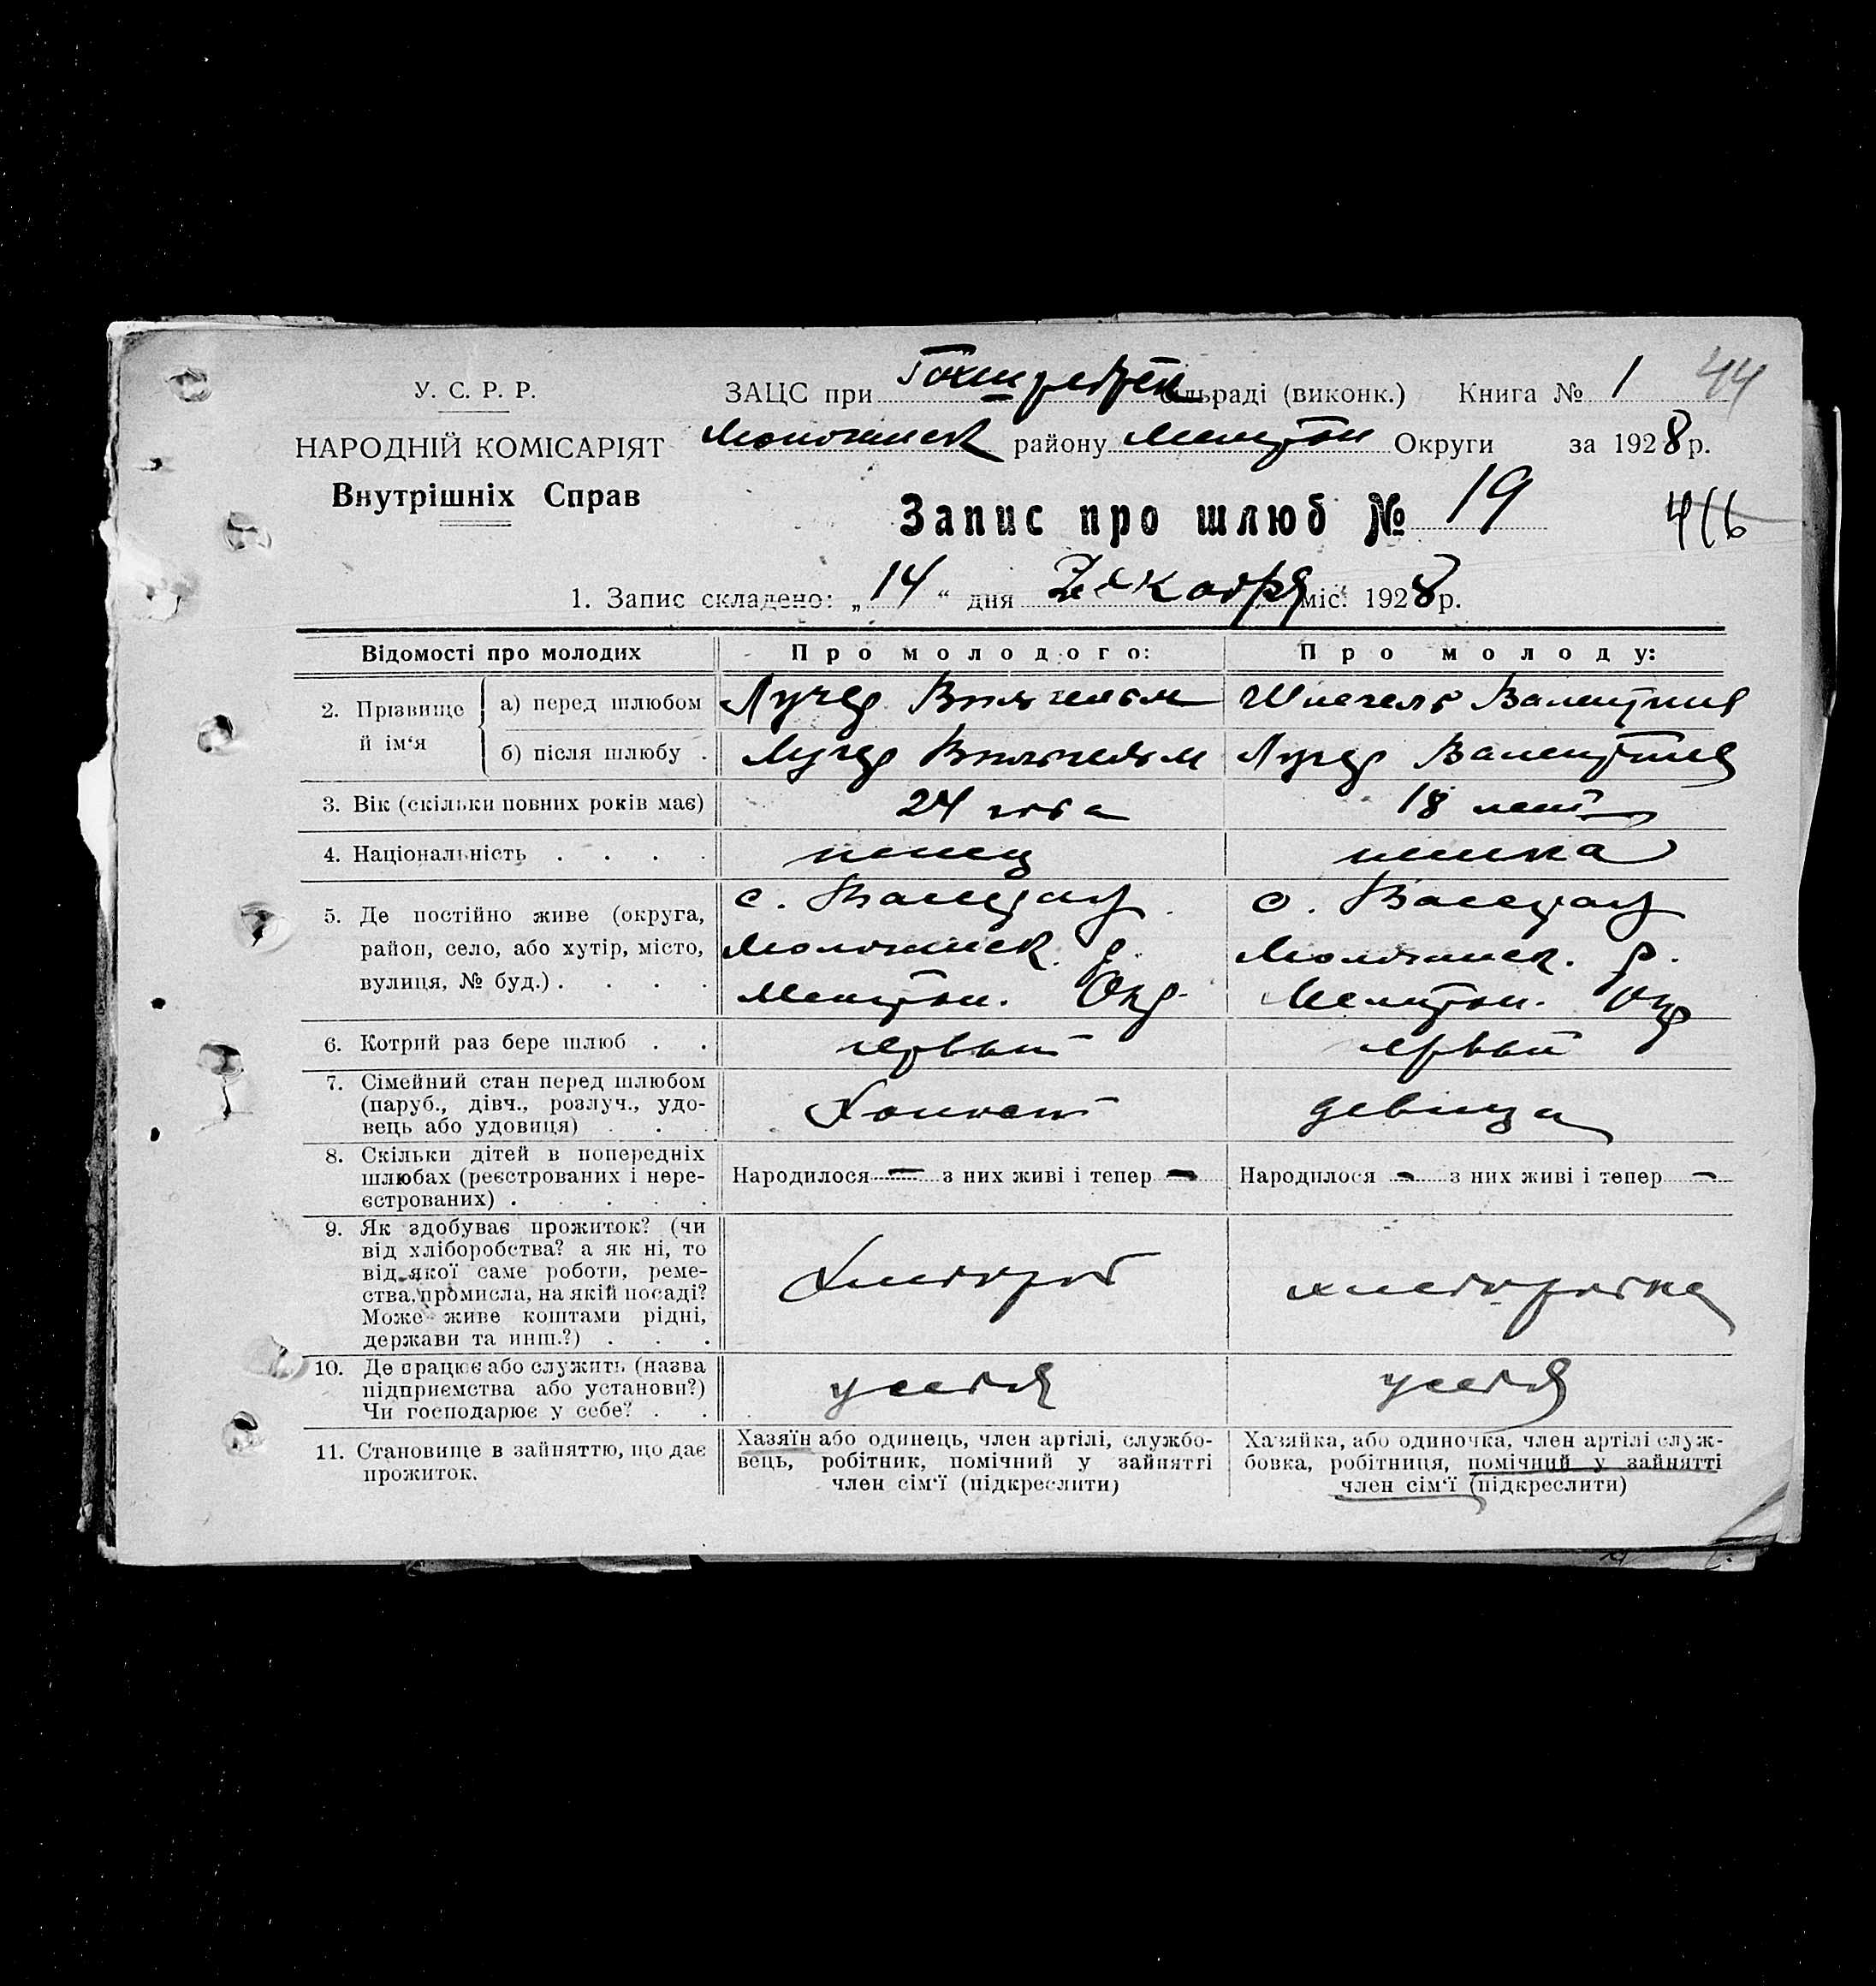 44
У. С. Р. Р.
ЗАЦС при Гохштедтск сільраді (виконк.) Книга № 1
НАРОДНІЙ КОМІСАРІЯТ
Молочанск району Мелитоп Округи за 1928 р.
Внутрішніх Справ
Запис про шлюб № 19
1. Запис складено: „14“ дня Декабря міс. 1928 р.
Відомості про молодих Про молодого: Про молоду:
2. Прізвище й ім‘я
а) перед шлюбом Вильгельм Шпегель Валентина
б) після шлюбу . Вильгельм Валентина
3. Вік (скільки повних років має) 24 года 18 лет
4. Національність . . . . немец немка
5. Де постійно живе (округа, с. с.
район, село, або хутір, місто, Молочанск. р. Молочанск. р.
вулиця, № буд.) . . . . Мелитоп. Окр. Мелитоп. Окр
6. Котрий раз бере шлюб . . первый первый
7. Сімейний стан перед шлюбом
(паруб., дівч., розлуч., удо- Холост девица
вець або удовиця) . . .
8. Скільки дітей в попередніх
шлюбах (реєстрованих і нере- Народилося — з них живі і тепер — Народилося — з них живі і тепер —
єстрованих) . . . . .
9. Як здобуває прожиток? (чи
від хліборобства? а як ні, то
від якої саме роботи, реме- Хлебороб хлеборобка
ства, промисла, на якій посаді?
Може живе коштами рідні,
держави та инш.?) . . .
10. Де працює або служить (назва
підприємства або установи?) у себя у себя
Чи господарює у себе? . .
11. Становище в зайняттю, що дає Хазяїн або одинець, член артілі, службо- Хазяйка, або одиночка, член артілі служ-
прожиток. вець, робітник, помічний у зайнятті бовка, робітниця, помічний у зайнятті
член сім‘ї (підкреслити) член сім‘ї (підкреслити)